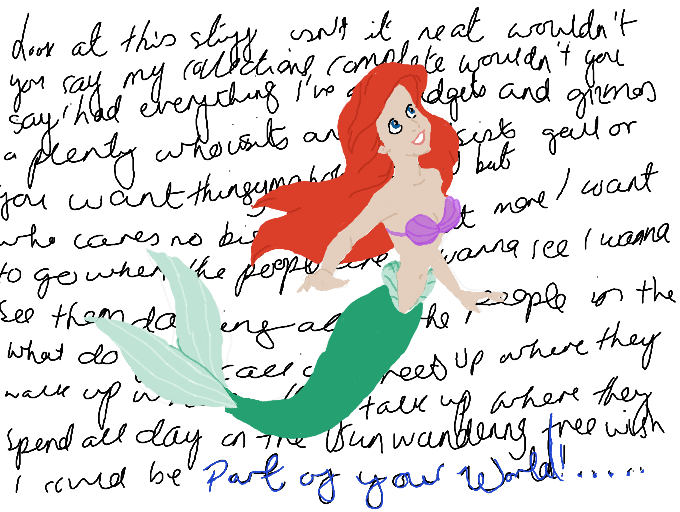 Look at this stuff isn't it neat wouldn't
you say my collections complete wouldn't you
say I had everything I've and gizmos
a plenty whosits and gall or
you want thingyma but
who cares no big more I want
to go when the people wanna see I wanna
see them the people in the
What do call up where they
walk up talk up where they
spend all day on the sun wandering free wish
I could be Part of your World!.....